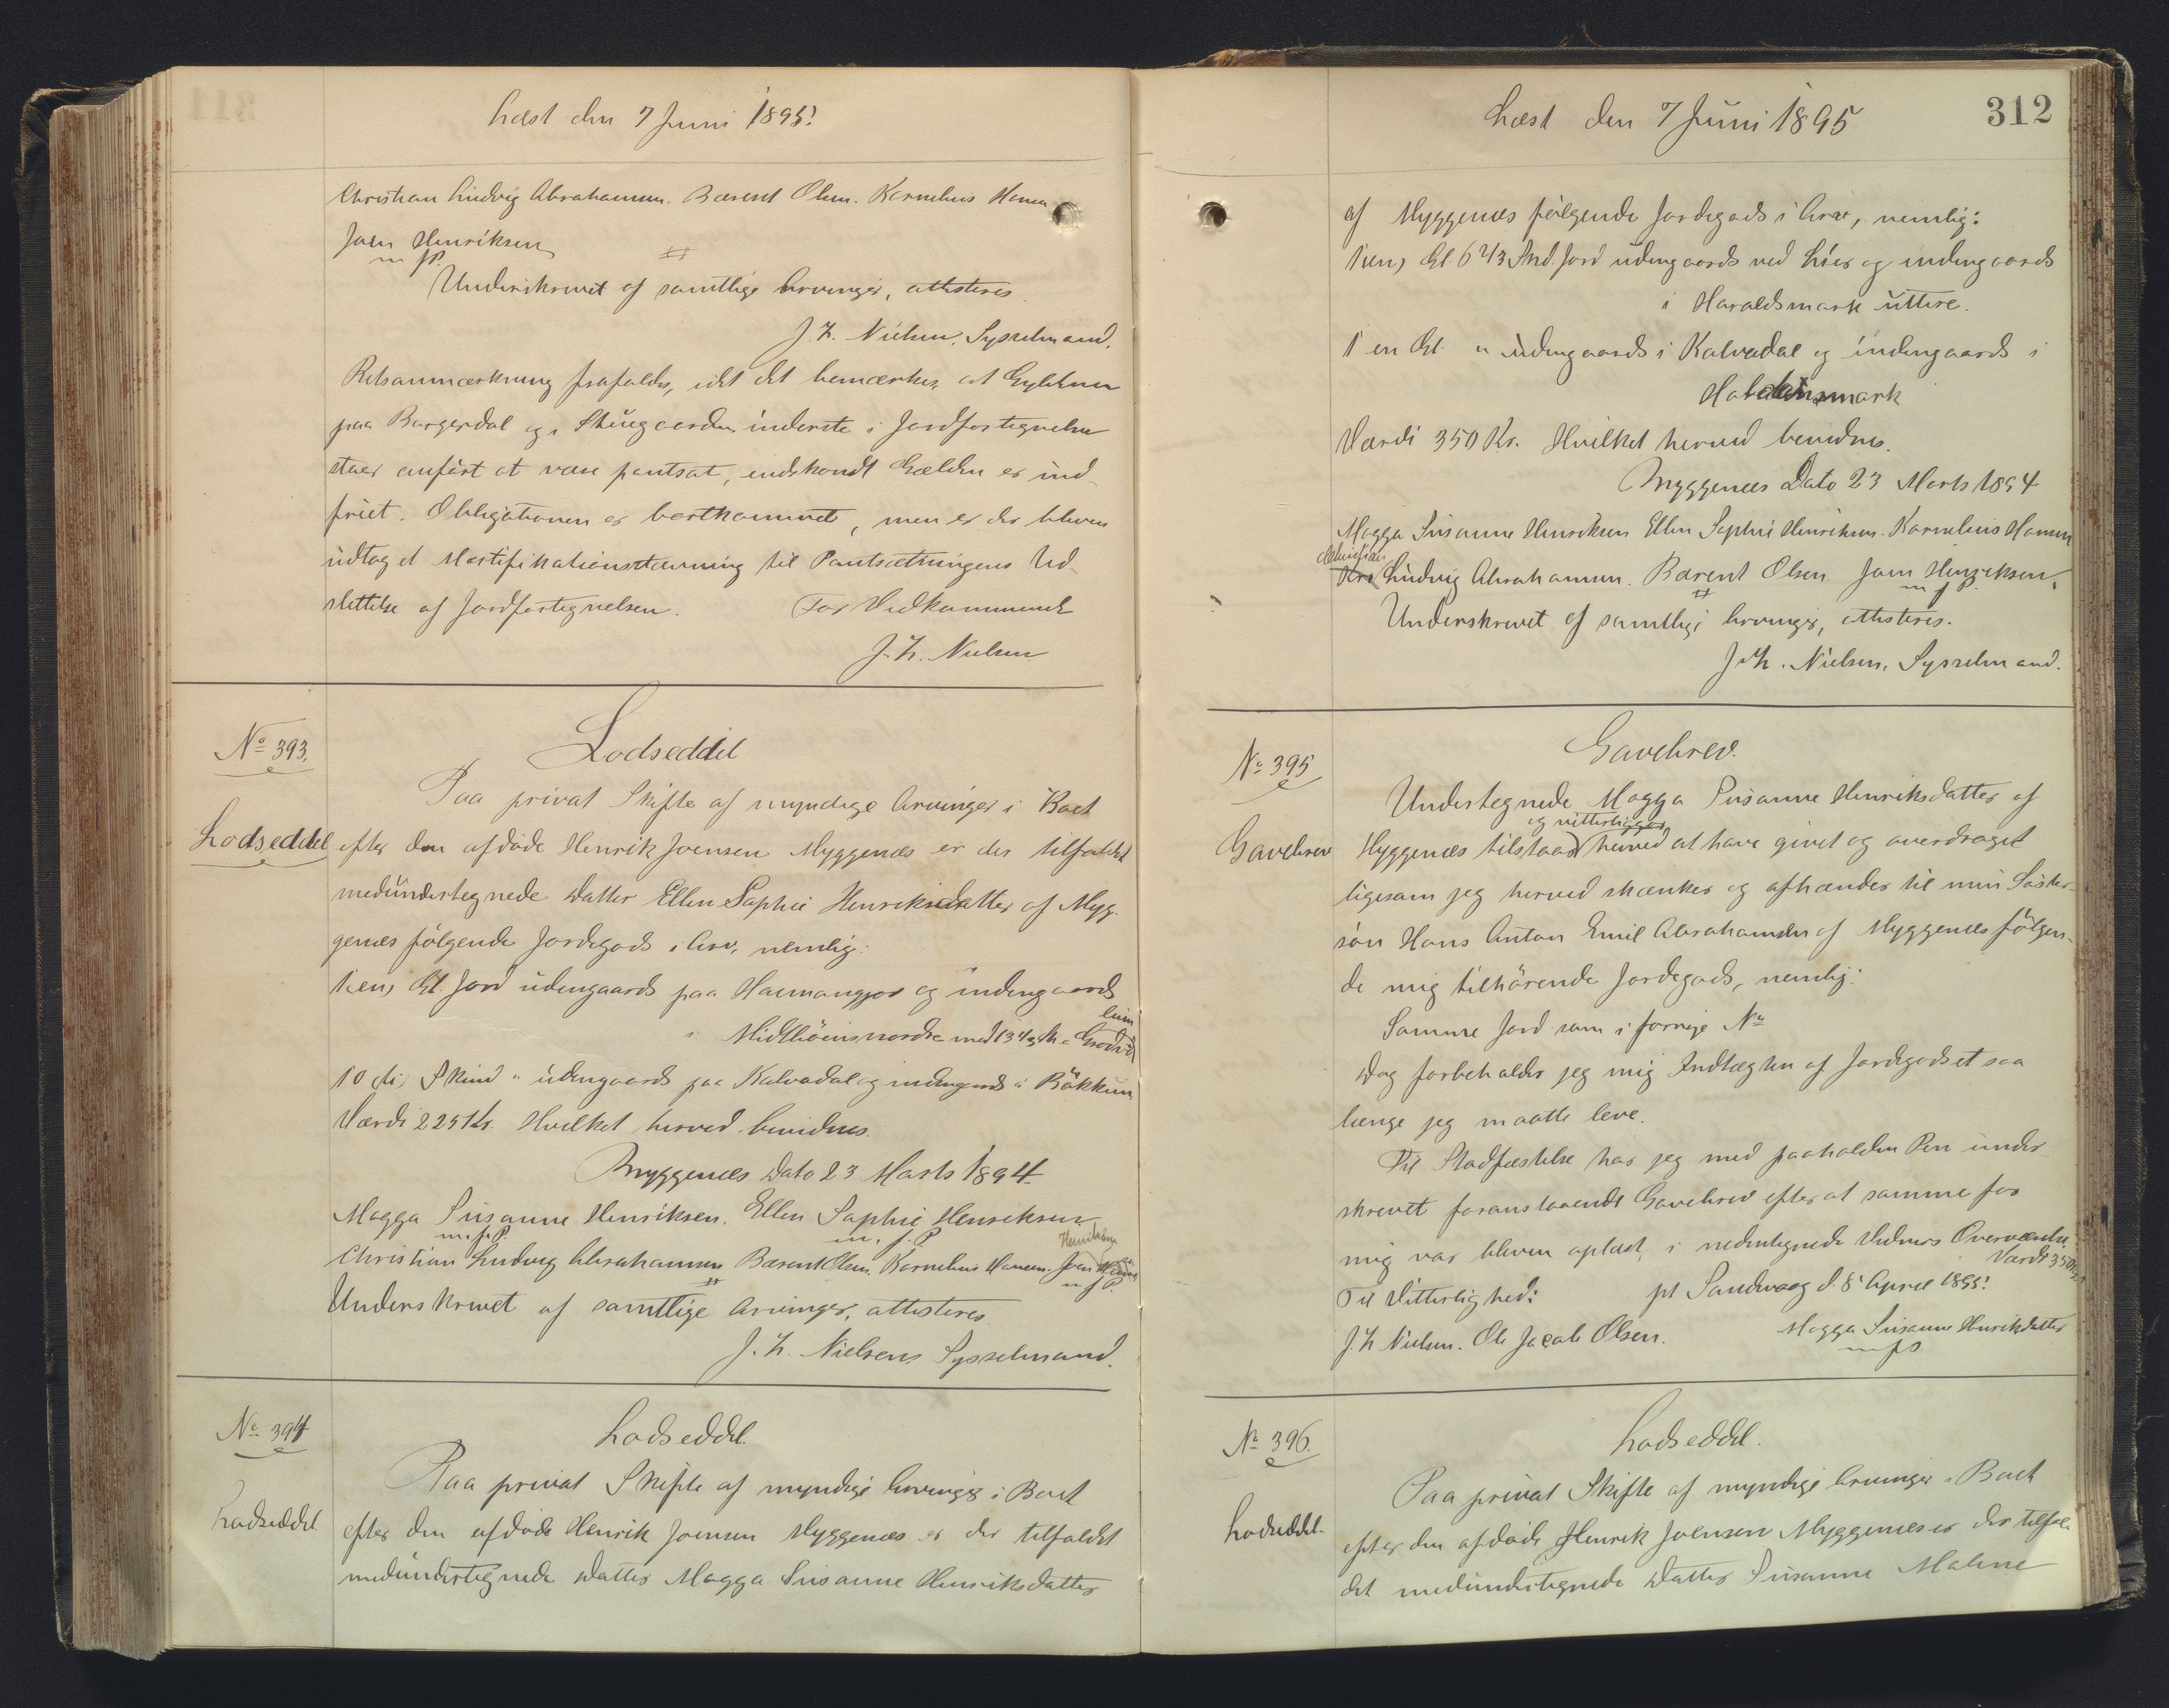 Læst den 7 Juni 1895.
Christian Ludvig Abrahamsen. Bærent Olsen. Kornelius Hansen
Joen Henriksen
m f P.
Underskrevet af samtlige Arvinger, attesteres.
J. H. Nielsen, Sysselmand.
Retsanmærkning frafaldes, idet det bemærkes, at Gylden
paa Borgerdal og i Stuegaarden inderste i Jordfortegnelsen
staar anført at være pantsat, endskondt Gælden er ind-
friet. Obligationen er bortkommet, men er der bleven
udtaget Mortifikationsstævning til Pantsætningens Ud-
slettelse af Jordfortegnelsen. For Vedkommende
J. H. Nielsen
No 393.
Lodseddel
Lodseddel
Paa privat Skifte af myndige Arvinger i Boet
efter den afdøde Henrik Joensen Myggenæs er der tilfaldet
medundertegnede Datter Ellen Sophie Henriksdatter af Myg-
genæs følgende Jordegods i Arv, nemlig:
1 (en) Gl. Jord udengaards paa og indengaards
i nordre med 13 4/3
10 (ti) Skind " udengaards paa Kalvadal og indengaards i Bökkun
Værdi 225 Kr. Hvilket herved bevidnes.
Myggenæs Dato 23 Marts 1894.
Magga Susanne Henriksen. Ellen Sophie Henriksen
m. f. P. m. f. P
Henriksen
Christian Ludvig Abrahamsen Bærent Olsen. Kornelius Hansen. Joen
m f P.
Underskrevet af samtlige Arvinger, attesteres.
J. H. Nielsen Sysselmand.
No 394
Lodseddel
Lodseddel.
Paa privat Skifte af myndige Arvinger i Boet
efter den afdøde Henrik Joensen Myggenæs er der tilfaldet
medundertegnede Datter Magga Susanne Henriksdatter
Læst den 7 Juni 1895
312
af Myggenæs følgende Jordegods i Arv, nemlig:
1 (en) Gl. 6 2/3 Skd. Jord udengaards ved Lier og indengaards
i Haraldsmark uttere.
1 en Gl. " udengaards i Kalvadal og indengaards i
Værdi 350 Kr. Hvilket herved bevidnes.
Myggenæs Dato 23 Marts 1894
Magga Susanne Henriksen Ellen Sophie Henriksen. Kornelius Hansen
Christian
Ludvig Abrahamsen. Bærent Olsen Joen Henriksen.
m f P.
Underskrevet af samtlige Arvinger, attesteres.
J. H. Nielsen, Sysselmand.
No 395
Gavebrev
Gavebrev.
Undertegnede Magga Susanne Henriksdatter af
og vitterliggør
Myggenæs tilstaar herved at have givet og overdraget
ligesom jeg herved skænker og afhænder til min Søster-
søn Hans Anton Emil Abrahamsen af Myggenæs følgen-
de mig tilhørende Jordegods, nemlig:
Samme Jord som i forrige No
Dog forbeholder jeg mig Indtægten af Jordegodset saa
længe jeg maatte leve.
Til Stadfæstelse har jeg med paaholden Pen under-
skrevet foranstaaende Gavebrev efter at samme for
mig var bleven oplæst i nedentegnede Vidners Overværelse.
Værdi 350 Kr
Til Vitterlighed: pt Sandvaag d. 8 April 1895.
J. H Nielsen. Ole Jacob Olsen. Magga Susanne Henriksdatter
m f P
No 396.
Lodseddel.
Lodseddel.
Paa privat Skifte af myndige Arvinger i Boet
efter den afdøde Henrik Joensen Myggenæs er der tilfal-
det medundertegnede Datter Susanne Malene